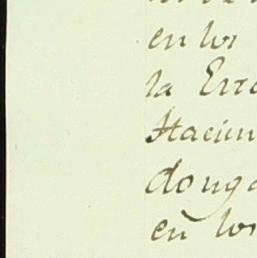 en los
la Erra
Hacien
donga
en los